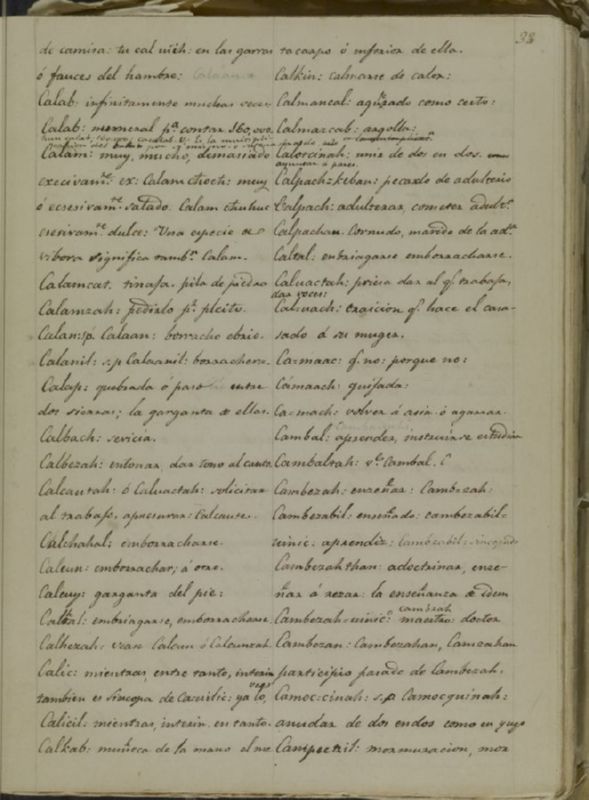 38
de camisa: tu cal uich: en las garras
ó fauces del hambre:
Calab: infinitamente muchas veces
Calab: numeral pª contar 160,000
Calam: muy, mucho, demasiado
excecivamte ex: Calam choch: muy
ó ecsesivamte salado. Calam chuhuc
ecsesivamte dulce: Una especie de
vibora significa tambn Calam.
Calamcat. tinaja. pila de piedra
Calamzah: pedirlo pª pleito.
Calan: s.p. Calaan: borracho ebrio.
Calanil: s.p Calaanil: borrachera.
Calap: quebrada ó paso entre
dos sierras; la garganta de ellas.
Calbach: sevicia.
Calbezah: entonar, dar tono al canto.
Calcautah: ó Caluactah: solicitar
al trabajo, apresurar: Calcaute.
Calchahal: emborracharse.
Calcun: emborrachar, á otro.
Calcuy: garganta del pie:
Caltal: embriagarse, emborracharse.
Calhezah: vease Calcun ó Calcunzah.
Calic: mientras, entre tanto, interin
tambien es Sincopa de Cacuilic: ya lo,
Calicil: mientras, interin, en tanto.
Calkab: muñeca de la mano el me
tacarpo ó inferior de ella.
Calkin: calmarse de calor:
Calmancal: aguzado como cesto:
Calmazcab: argolla:
Calotcinah: unir de dos en dos.
ayuntar á pares.
Calpach-keban: pecado de adulterio
Calpach: adulterar, cometer adultº.
Calpachan. Cornudo, marido de la adª.
Caltal: embriagarse emborracharse.
Caluactah: prisa dar al q. trabaja,
dar voces:
Caluach: traicion q. hace el casa-
sado á su muger.
Ca-maac: q. no: porque no:
Cámaach: quijada:
Ca-mach: volver á asir ó agarrar.
Cambal: aprender, instruirse estudiar
Cambaltah: vº Cambal.
Cambezah: enseñar: Cambezah:
Cambezabil: enseñado: cambezabil-
uinic: aprendiz:
Cambezah than: adoctrinar, ense-
ñar á rezar: la enseñanza de idem
Cambezah-uinic: maestro: doctor
Cambezan: Cambezahan, Camzahan
participio pasado de Cambezah.
Camoc-cinah: s.p Camocquinah:
anudar de dos endos como en yugo
Campectzil: mormuracion, mor